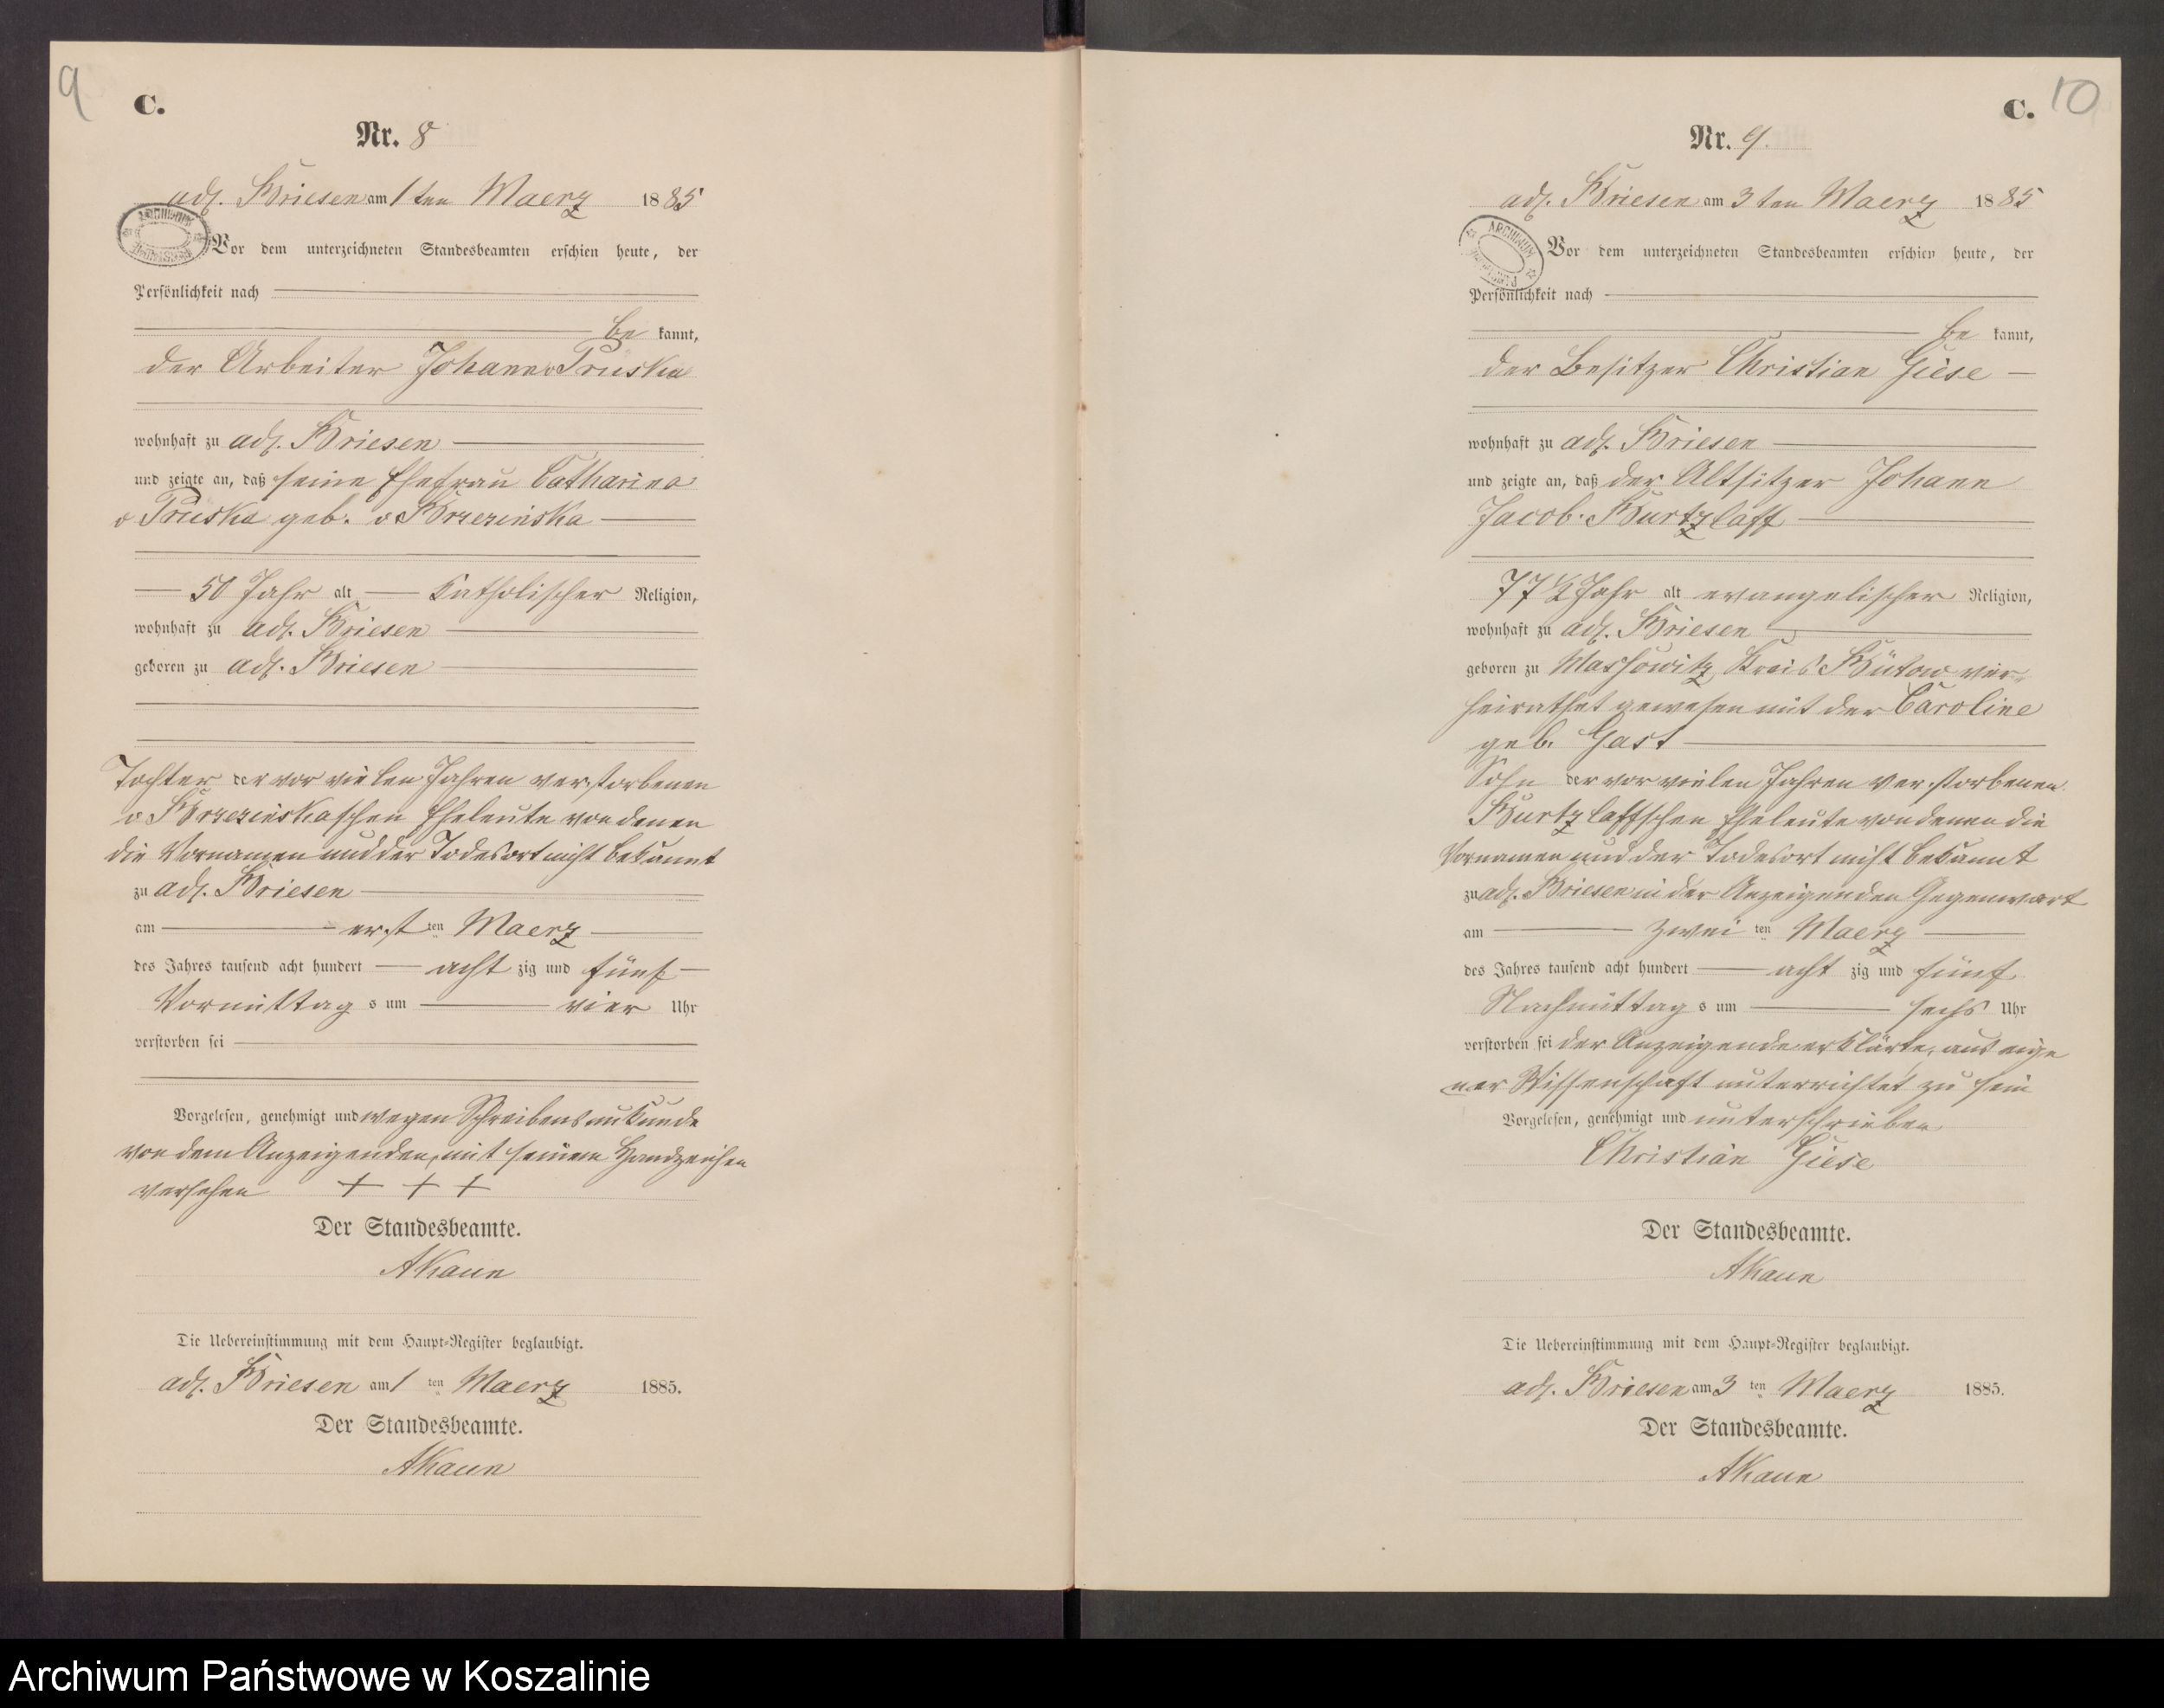 9
C.
Nr. 8
adl. Briesen am 1 ten Maerz 1885
Vor dem unterzeichneten Standesbeamten erschien heute, der
Persönlichkeit nach
be kannt,
der Arbeiter Johann v Pruska
wohnhaft zu adl. Briesen
und zeigte an, daß seine Ehefrau Catharina
v Pruska geb. v Brzezinska
50 Jahr alt Katholischer Religion,
wohnhaft zu adl. Briesen
geboren zu adl. Briesen
Tochter der vor vielen Jahren verstorbenen
v Brzezinskaschen Eheleute von denen
die Vornamen und der Todesort nicht bekannt
zu adl. Briesen
am erst ten Maerz
des Jahres tausend acht hundert acht zig und fünf
Vormittag s um vier Uhr
verstorben sei
Vorgelesen, genehmigt und wegen Schreibensunkunde
von dem Anzeigenden, mit seinem Handzeichen
versehen + + +
Der Standesbeamte.
AKaun
Die Uebereinstimmung mit dem Haupt-Register beglaubigt.
adl. Briesen am 1 ten Maerz 1885.
Der Standesbeamte.
AKaun
10
C.
Nr. 9.
adl. Briesen am 3 ten Maerz 1885
ARCHIWUM
Vor dem unterzeichneten Standesbeamten erschien heute, der
Persönlichkeit nach
be kannt,
der Besitzer Christian Giese
wohnhaft zu adl. Briesen
und zeigte an, daß der Altsitzer Johann
Jacob Kurtzlaff
77 1/2 Jahr alt evangelischer Religion,
wohnhaft zu adl. Briesen
geboren zu Massowitz Kreis Bütow ver-
heirathet gewesen mit der Caroline
geb. Gast
Sohn der vor vielen Jahren verstorbenen
Kurtzlaffschen Eheleute von denen die
Vornamen und der Todesort nicht bekannt
zu adl. Briesen in der Anzeigenden Gegenwart
am zwei ten Maerz
des Jahres tausend acht hundert acht zig und fünf
Nachmittag s um sechs Uhr
verstorben sei der Anzeigende erklärte, aus eige
ner Wissenschaft unterrichtet zu sein
Vorgelesen, genehmigt und unterschrieben
Christian Giese
Der Standesbeamte.
AKaun
Die Uebereinstimmung mit dem Haupt-Register beglaubigt.
adl. Briesen am 3 ten Maerz 1885.
Der Standesbeamte.
AKaun
Archiwum Państwowe w Koszalinie